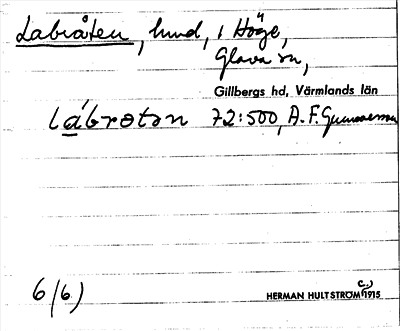 Labråten, lund, i Höge,
Glava sn,
Gillbergs hd, Värmlands län
lábrotən 72:500, A. F. Gunnarsson
6/6)
HERMAN HULTSTRÖM 1915